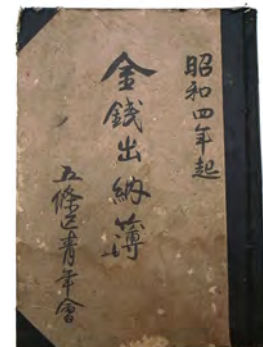 昭和四年起
金錢出納簿
五條区青年會